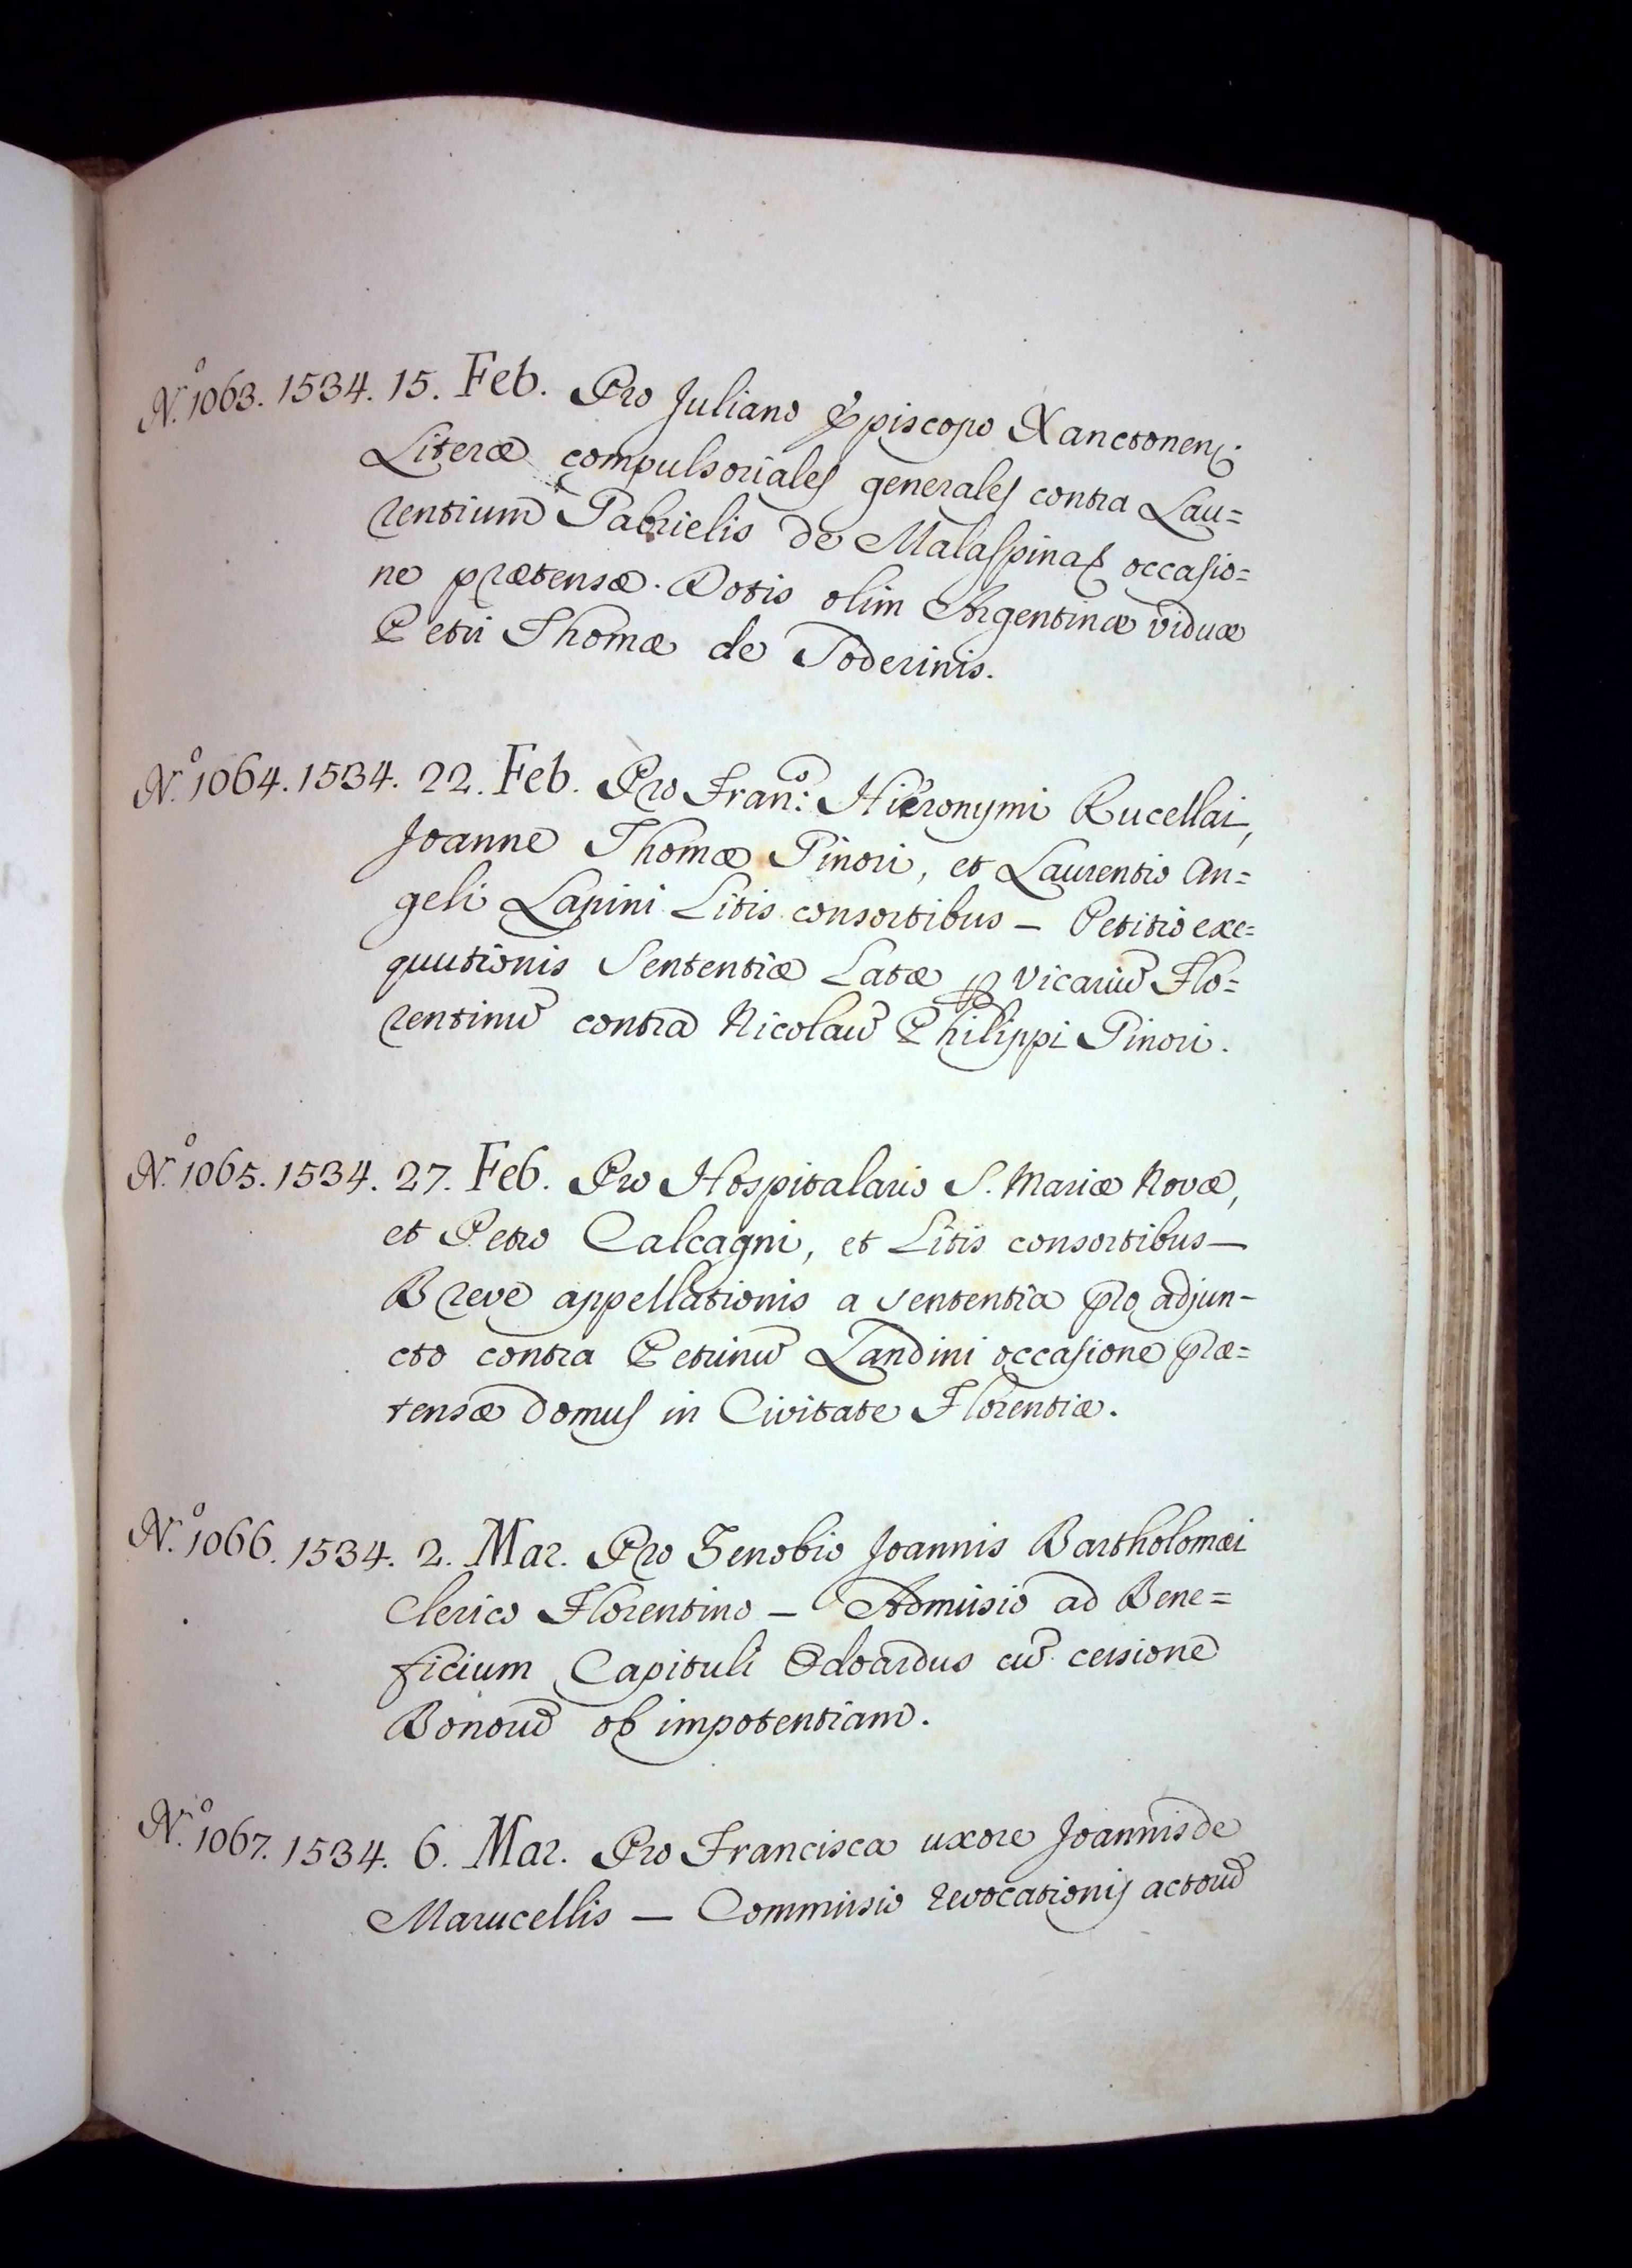 N.º 1063. 1534. 15. Feb. Pro Juliano Episcopo Xanctonen:
Literæ compulsoriales generales contra Lau=
rentium Gabrielis de Malaspinas occasio=
ne prætensæ. Dotis olim Argentinæ viduæ
Petri Thomæ de Soderinis.
N.º 1064. 1534. 22. Feb. Pro Fran.º: Hieronymi Rucellai,
Joanne Thomæ Ginori, et Laurentio An=
geli Lapini Litis consortibus – Petitio exe=
quutionis Sententiæ Latæ p vicariũ Flo=
rentinũ contra Nicolaũ Philippi Ginori.
N.º 1065. 1534. 27. Feb. Pro Hospitalario S. Mariæ Novæ,
et Petro Calcagni, et Litis consortibus –
Breve appellationis a sententia pro adjun-
cto contra Petrinũ Landini occasione præ=
tensæ domus in Civitate Florentiæ.
N.º 1066. 1534. 2. Mar. Pro Zenobio Joannis Bartholomæi
Clerico Florentino – Admissio ad Bene=
ficium Capituli Odoardus cũ cessione
Bonorũ ob impotentiam.
N.º 1067. 1534. 6. Mar. Pro Francisca uxore Joannis de
Marucellis – Commissio revocationis actorũ